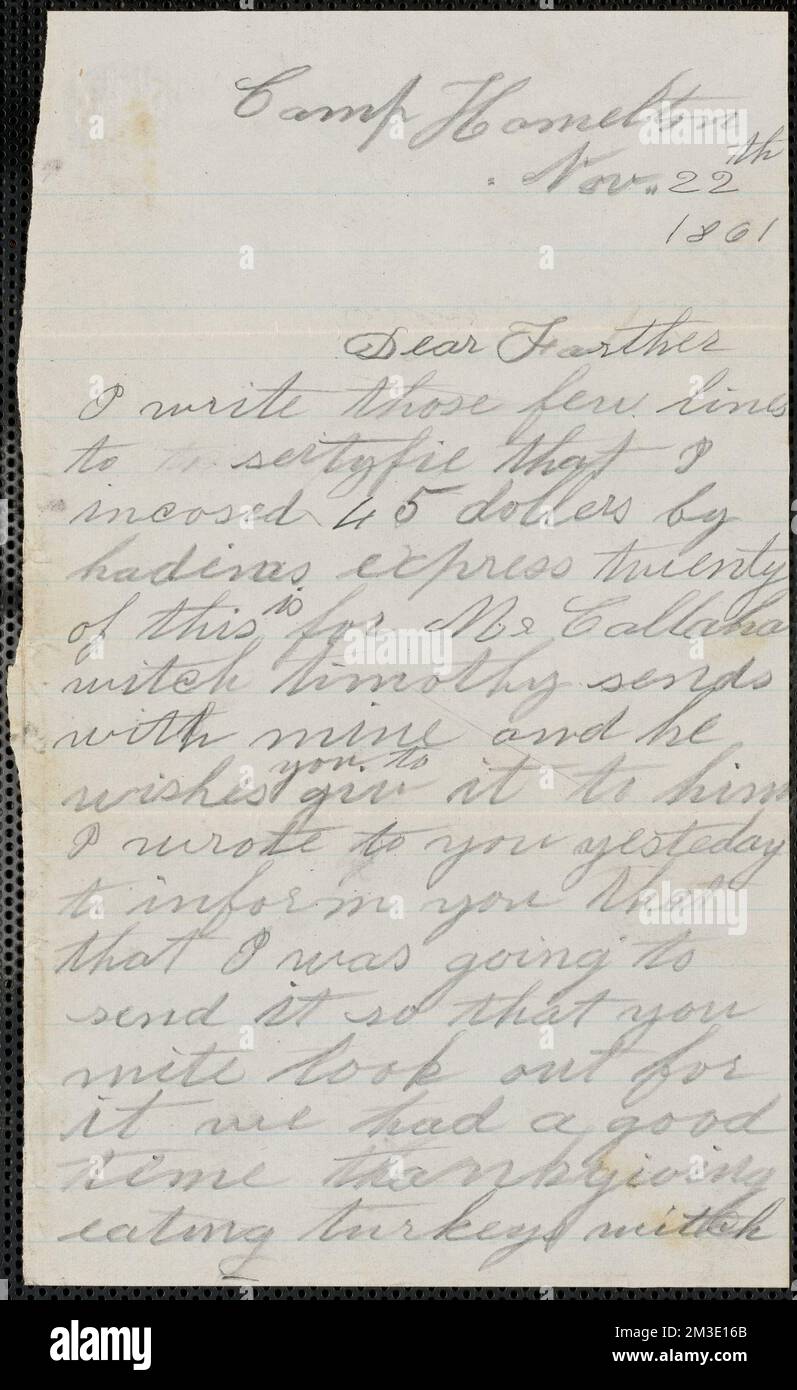 Camp Hamelton
Nov. 22th
1861
Dear Farther
I write those few lines
to sertyfie that I
incosed 45 dollers by
express twenty
of this is for Mr Callaha
witch timothy sends
with mine and he
wishes you to giv it to him
I wrote to you yesteday
to inform you that
that I was going to
send it so that you
mite look out for
it we had a good
time thanksgiving
eating turkey witch
alamy
Image ID: 2M3E16B
www.alamy.com